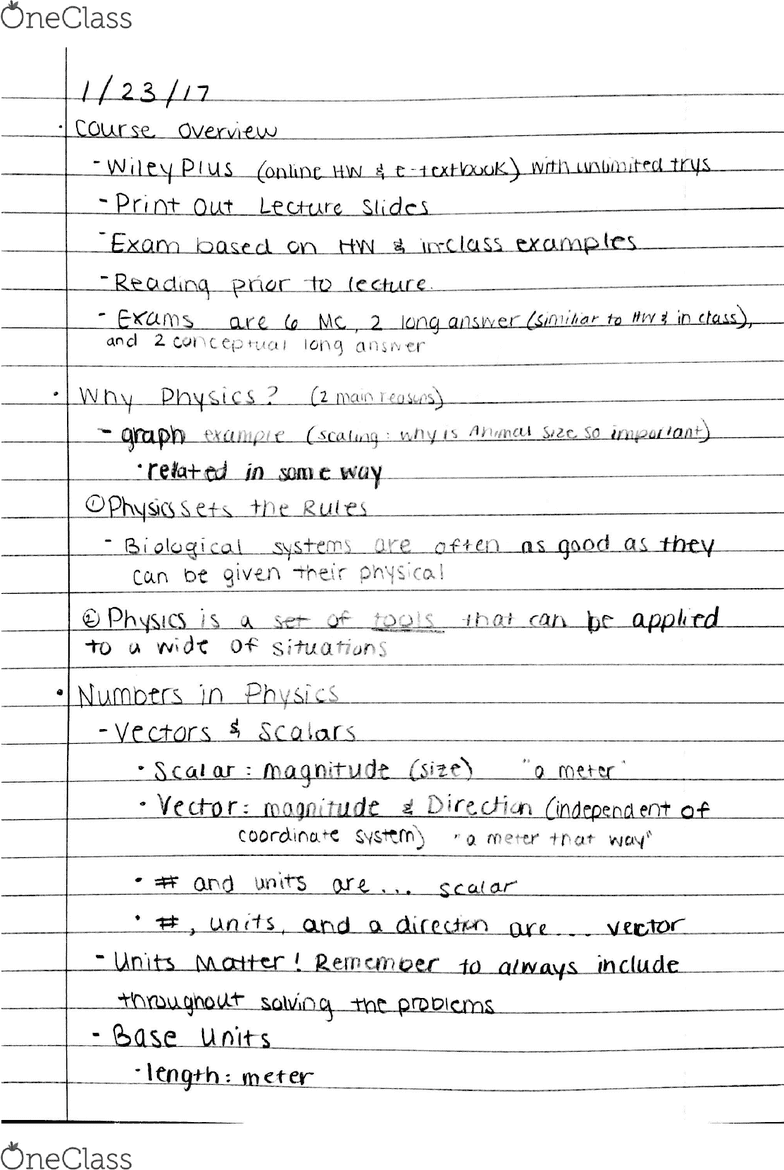 OneClass
1/23/17
· Course overview
- Wiley Plus (online HW & e-textbook) with unlimited trys
- Print Out Lecture Slides
- Exam based on HW & in-class examples
- Reading prior to lecture.
- Exams are 6 MC, 2 long answer (similiar to HW & in class),
and 2 conceptual long answer
· Why Physics? (2 main reasons)
- graph example (scaling: why is Animal size so important)
· related in some way
① Physics sets the Rules
- Biological systems are often as good as they
can be given their physical
② Physics is a set of tools that can be applied
to a wide of situations
· Numbers in Physics
- Vectors & Scalars
· Scalar: magnitude (size) "a meter"
· Vector: magnitude & Direction (independent of
coordinate system) "a meter that way"
· # and units are... scalar
· #, units, and a direction are... vector
- Units Matter! Remember to always include
throughout solving the problems
- Base Units
· length: meter
OneClass